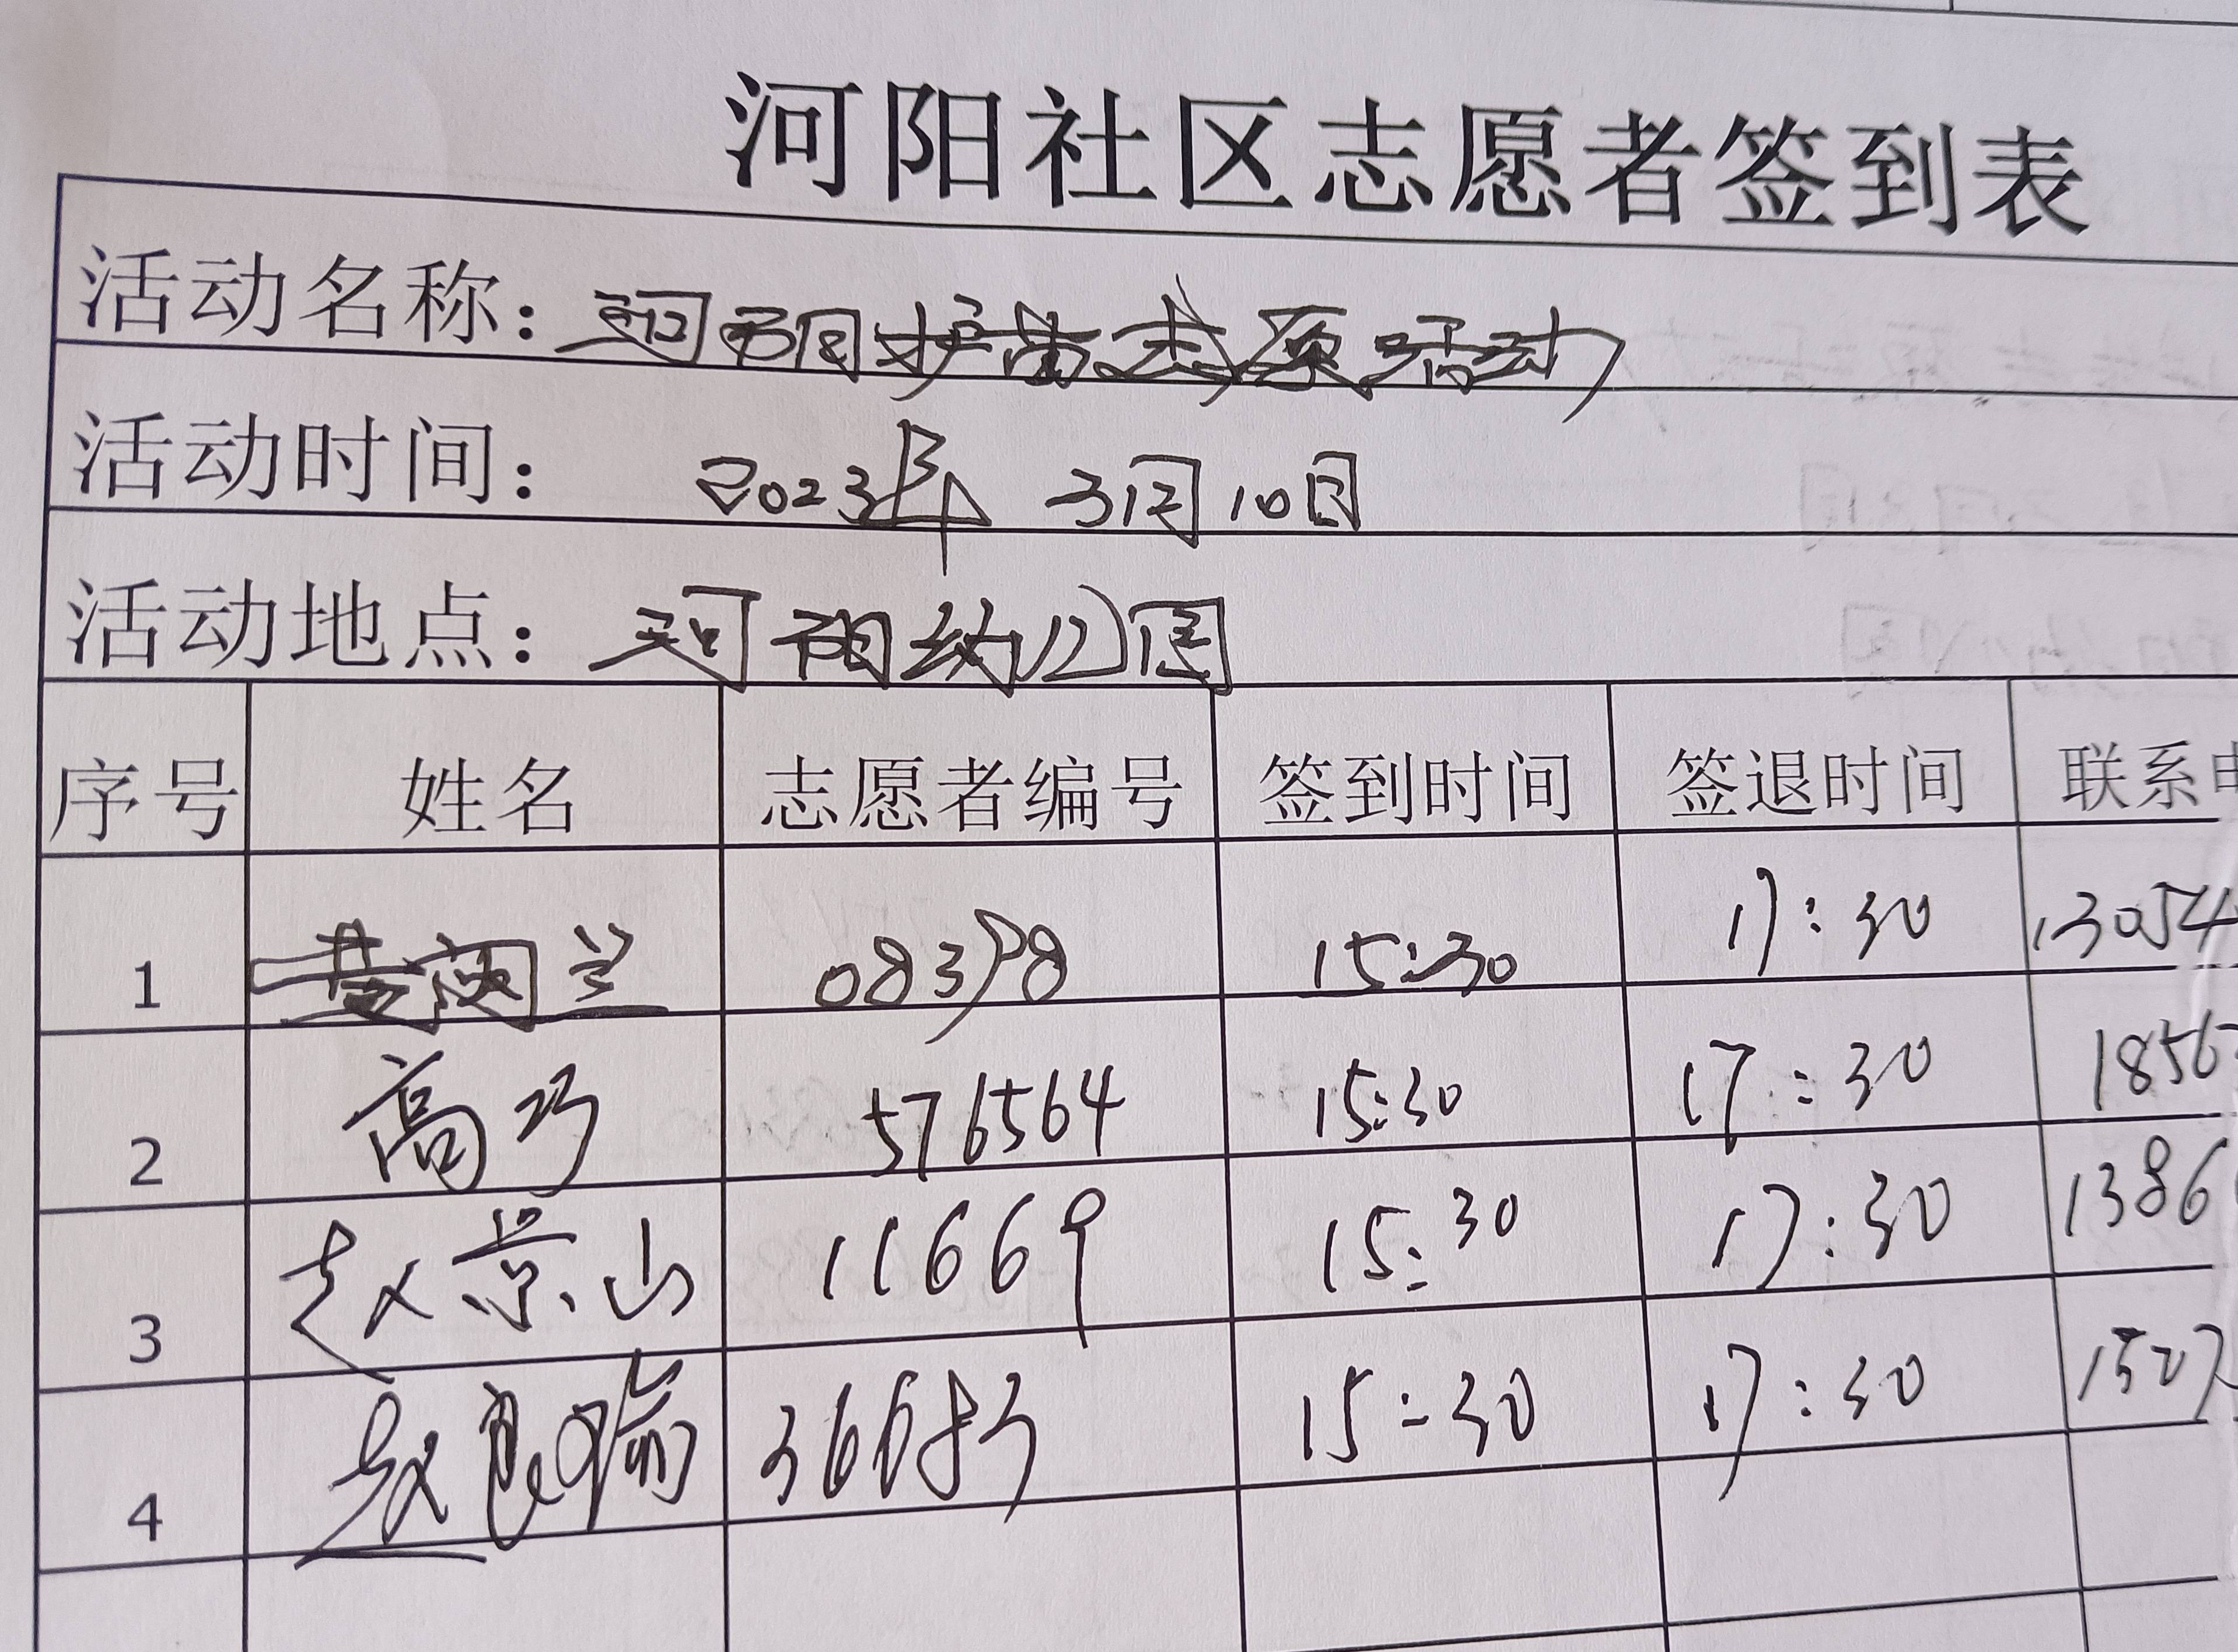 河阳社区志愿者签到表
活动名称：河阳护苗志愿活动
活动时间： 2023年 3月10日
活动地点：河阳幼儿园
序号 姓名 志愿者编号 签到时间 签退时间 联系
1 兰 083798 15:30 17:30 13054
2 高巧 576564 15:30 17:30 1856
3 赵景山 11669 15:30 17:30 1386
4 赵 15:30 17:30 1527